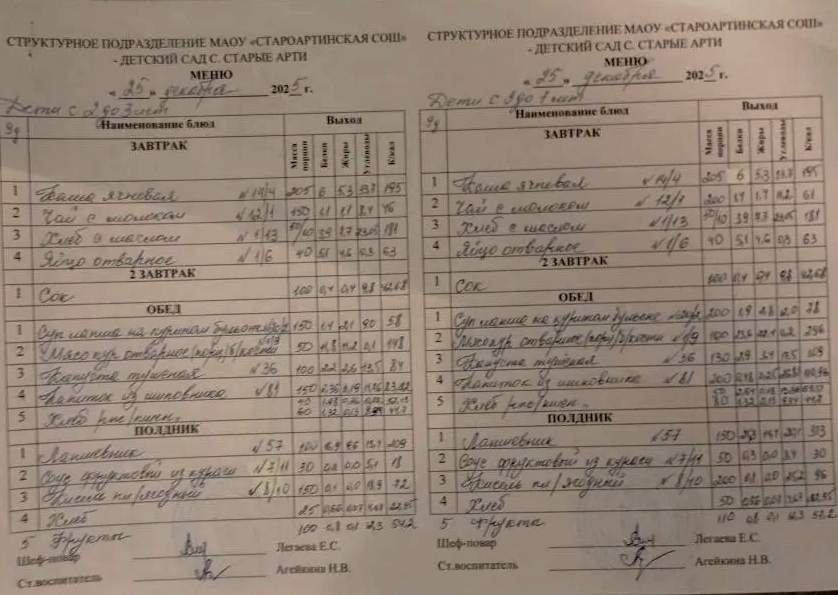 СТРУКТУРНОЕ ПОДРАЗДЕЛЕНИЕ МАОУ «СТАРОАРТИНСКАЯ СОШ»
- ДЕТСКИЙ САД С. СТАРЫЕ АРТИ
МЕНЮ
« 25 » декабря 2025 г.
Дети с 2 до 3 лет
Наименование блюд Выход
ЗАВТРАК Масса порции Белки Жиры Углеводы К/кал
1 Каша ячневая №14/4 205 6 5.3 195
2 Чай с молоком №12/1 150 1.1 1.1 46
3 Хлеб с маслом №1/13 181
4 Яйцо отварное №1/6 40 5.1 4.6 0.3 63
2 ЗАВТРАК
1 Сок 100 0,4 0,4 9.8 42,68
ОБЕД
1 Суп лапша на курином бульоне 150 1.4 2.1 58
2 Мясо кур отварное 50 148
3 Капуста тушеная №36 100 2.2 2.6 13.5 84
4 Напиток из шиповника №81 150
5 Хлеб рж/пшен.
ПОЛДНИК
1 Лапшевник №57 100 209
2 Соус фруктовый из кураги №7/11 30 0.2 0.0 5.1 18
3 Кисель пл/ягодный №8/10 150 0.1 0.0 18.9 72
4 Хлеб 25
5 Фрукты 100 0.8 0.1 12.3 57.2
Шеф-повар Легаева Е.С.
Ст.воспитатель Агейкина Н.В.
СТРУКТУРНОЕ ПОДРАЗДЕЛЕНИЕ МАОУ «СТАРОАРТИНСКАЯ СОШ»
- ДЕТСКИЙ САД С. СТАРЫЕ АРТИ
МЕНЮ
« 25 » декабря 2025 г.
Дети с 3 до 7 лет
Наименование блюд Выход
ЗАВТРАК Масса порции Белки Жиры Углеводы К/кал
1 Каша ячневая №14/4 205 6 5.3 195
2 Чай с молоком №12/1 200 1.7 11.2 61
3 Хлеб с маслом №1/13 181
4 Яйцо отварное №1/6 40 5.1 4.6 0.3 63
2 ЗАВТРАК
1 Сок 100 0,4 0,4 9.8 42,68
ОБЕД
1 Суп лапша на курином бульоне 200 1.9 2.8 78
2 Мясо кур отварное 100 0.2 296
3 Капуста тушеная №36 130 2.9 109
4 Напиток из шиповника №81 200
5 Хлеб рж/пшен.
ПОЛДНИК
1 Лапшевник №57 150 313
2 Соус фруктовый из кураги №7/11 50 0.3 0.0 30
3 Кисель пл/ягодный №8/10 200 0.1 0.0 25.2 96
4 Хлеб 50
5 Фрукты 110 0.8 0.1 12.3 57.2
Шеф-повар Легаева Е.С.
Ст.воспитатель Агейкина Н.В.